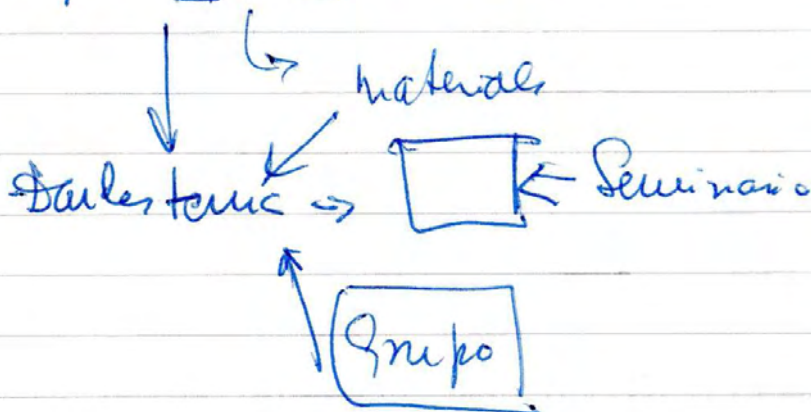 materiales
Darles tema → ← Seminario
Grupo